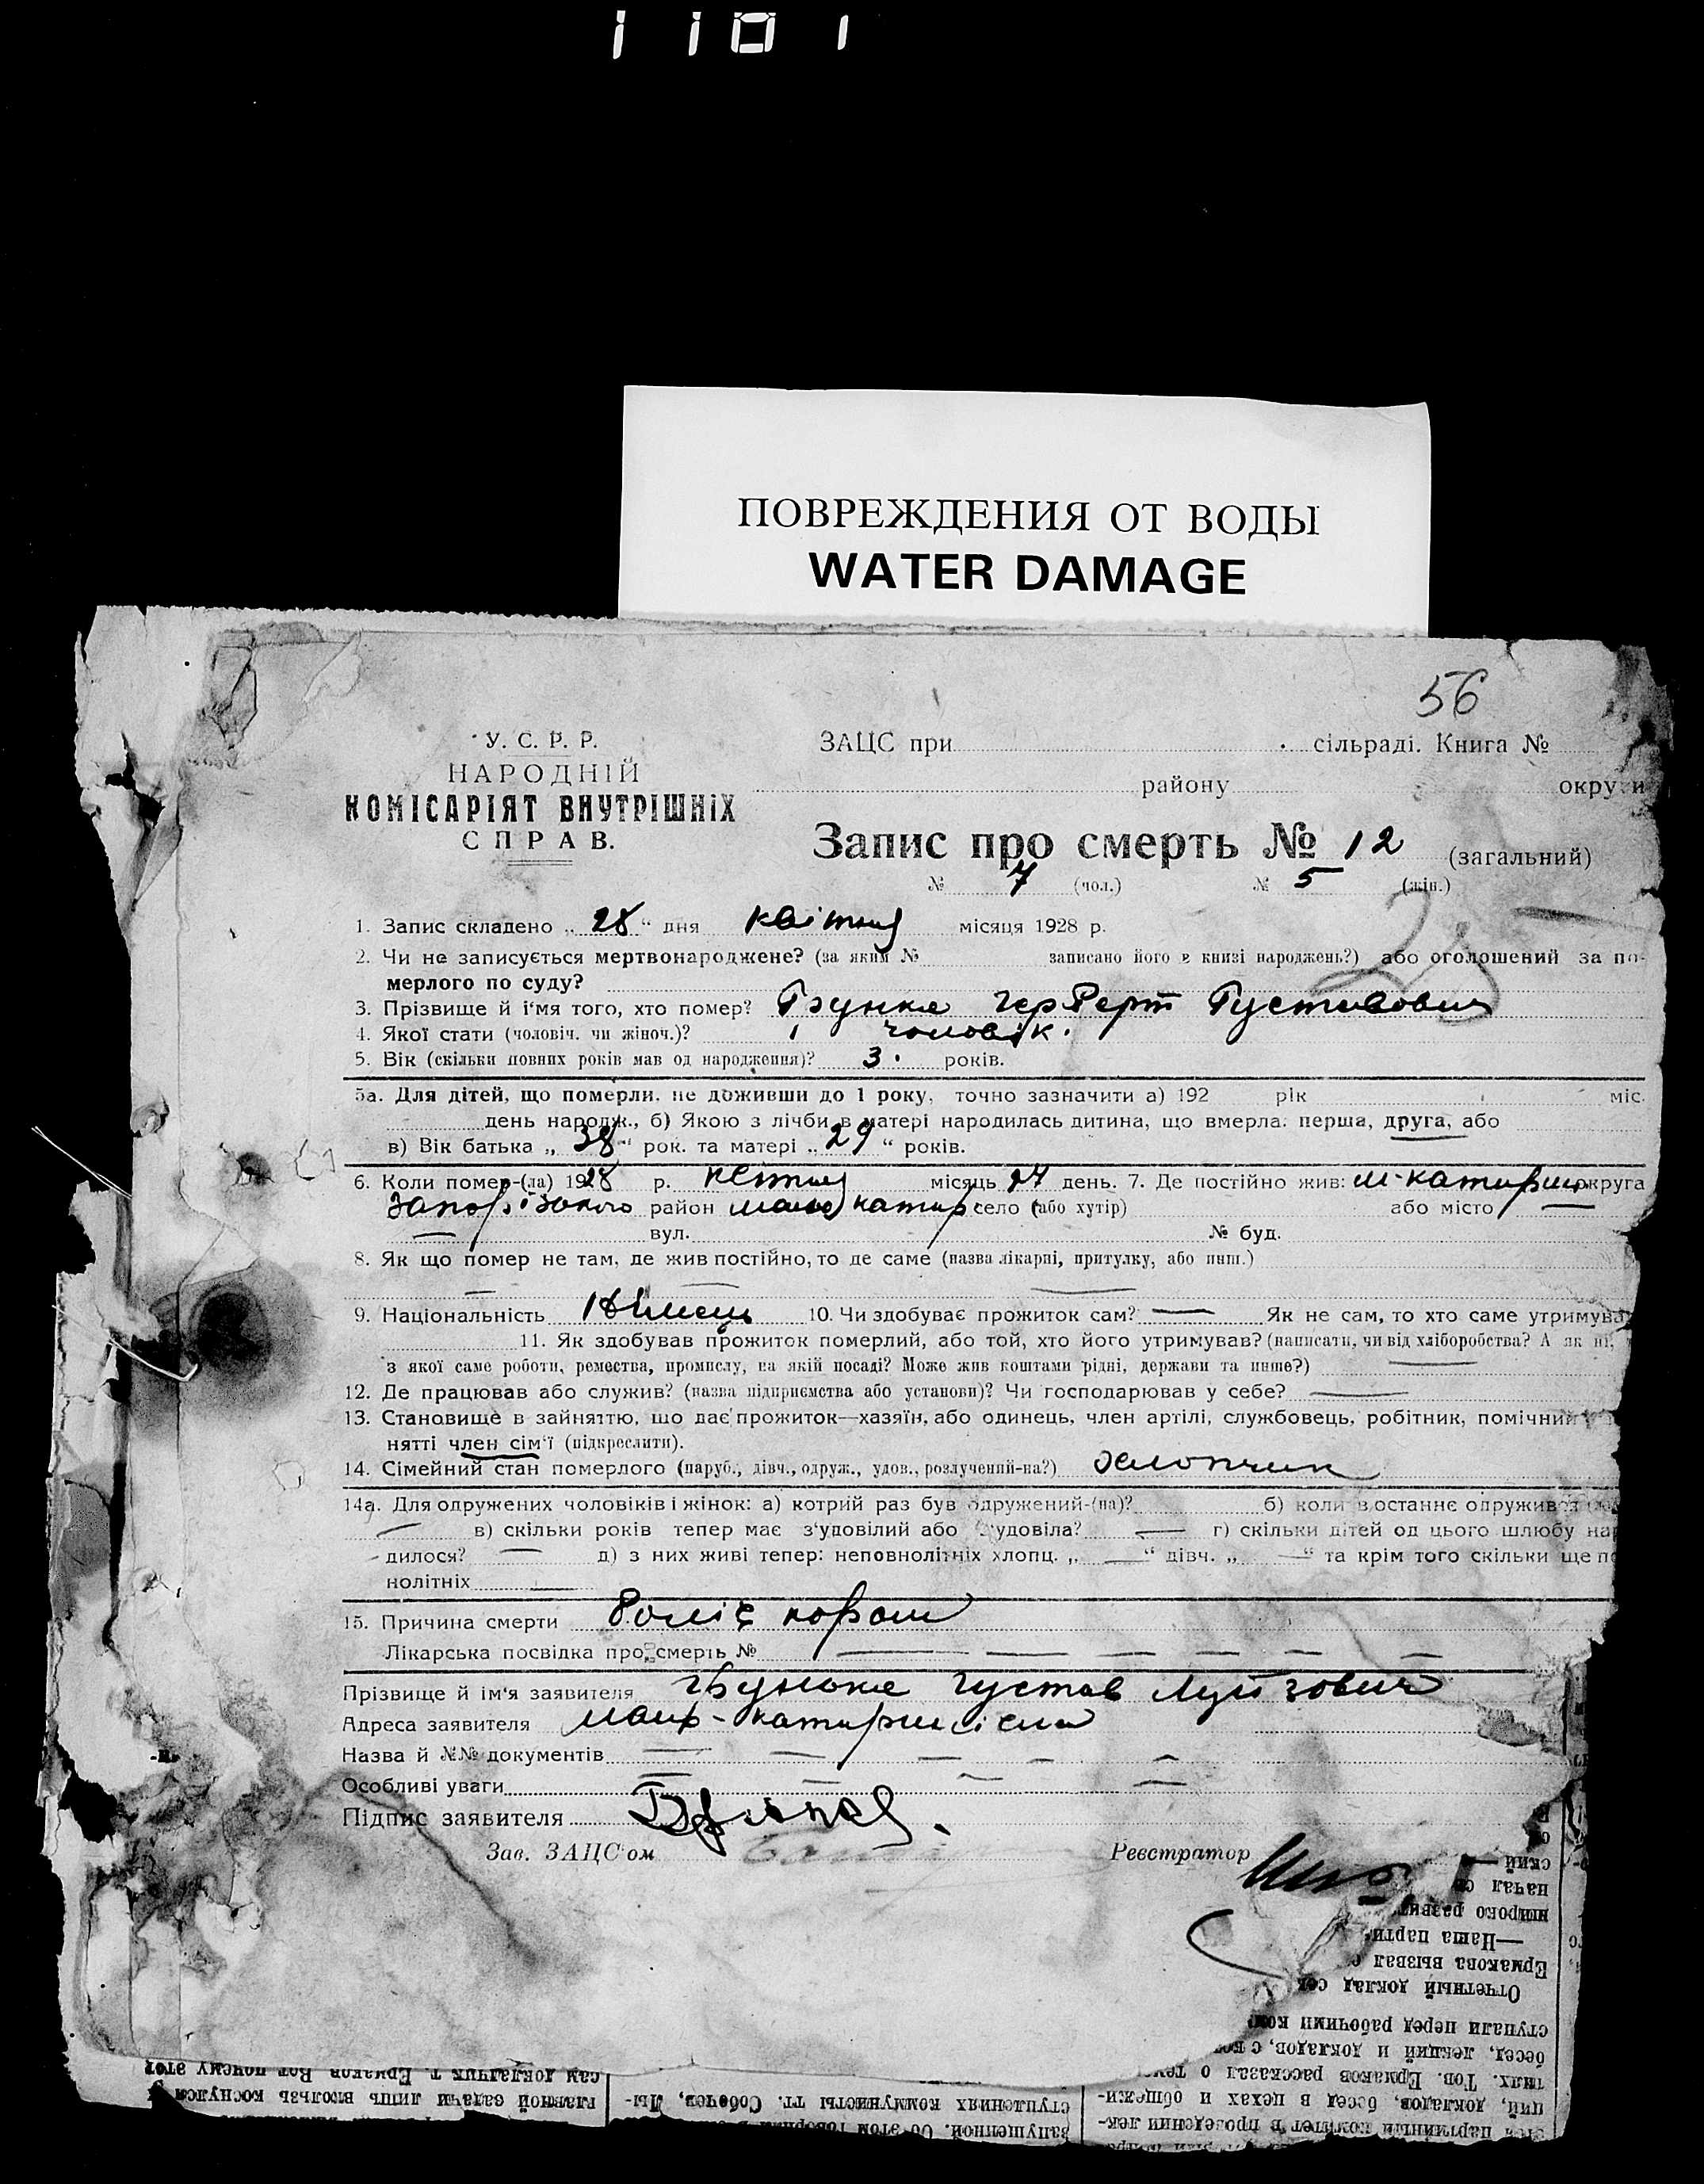 1101
ПОВРЕЖДЕНИЯ ОТ ВОДЫ
WATER DAMAGE
56
У. С. Р. Р.
НАРОДНІЙ
КОМІСАРІЯТ ВНУТРІШНІХ
СПРАВ.
ЗАЦС при сільраді. Книга №
району округи
Запис про смерть № 12 (загальний)
№ 7 (чол.) № 5 (жін.)
1. Запис складено „ 28 “ дня квітня місяця 1928 р.
2. Чи не записується мертвонароджене? (за яким № записано його в книзі народжень?) або оголошений за по-
мерлого по суду?
3. Прізвище й і'мя того, хто помер? Грунке Герберт Густавович
4. Якої стати (чоловіч. чи жіноч.)? чоловік.
5. Вік (скільки повних років мав од народження)? 3. років.
5а. Для дітей, що померли, не доживши до 1 року, точно зазначити а) 192 рік міс.
день народж., б) Якою з лічби в матері народилась дитина, що вмерла: перша, друга, або
в) Вік батька „ 38 “ рок. та матері „ 29 “ років.
6. Коли помер-(ла) 1928 р. квітня місяць 27 день. 7. Де постійно жив: округа
Запорізького район село (або хутір) або місто —
— вул. № буд.
8. Як що помер не там, де жив постійно, то де саме (назва лікарні, притулку, або инш.)
— —
9. Національність Німець 10. Чи здобуває прожиток сам? — Як не сам, то хто саме утримува
11. Як здобував прожиток померлий, або той, хто його утримував? (написати, чи від хліборобства? А як ні,
з якої саме роботи, ремества, промислу, на якій посаді? Може жив коштами рідні, держави та инше?) —
12. Де працював або служив? (назва підприємства або установи)? Чи господарював у себе? —
13. Становище в зайняттю, що дає прожиток—хазяїн, або одинець, член артілі, службовець, робітник, помічний
нятті член сім'ї (підкреслити).
14. Сімейний стан померлого (паруб., дівч., одруж., удов., розлучений-на?) хлопчик
14а. Для одружених чоловіків і жінок: а) котрий раз був одружений-(на)? б) коли востаннє одружив
— в) скільки років тепер має з'удовілий або з'удовіла? — г) скільки дітей од цього шлюбу на
дилося? — д) з них живі тепер: неповнолітніх хлопц. „ — “ дівч. „ — “ та крім того скільки ще по
нолітніх —
15. Причина смерти
Лікарська посвідка про смерть № — — — — — —
Прізвище й ім'я заявителя Грунке Густав Луйзович
Адреса заявителя
Назва й №№ документів — — — — —
Особливі уваги — — — —
Підпис заявителя
Зав. ЗАЦС'ом Реєстратор
ский
начал
широко развит
—Наша парти
Ермакова вызвал
Отчетный доклад сек
ступали перед рабочими ком
бесед, лекций и докладов, с
тиях. Тов. Ермаков рассказал о
ций, докладов, бесед в цехах и общежи-
партийный комитет в проведении лек-
запущенной. Об этом говорил
ступлениях коммунисты тт. Собачев, Лы-
главной задачи лишь вскользь коснулся
сам докладчик т. Ермаков. Вот почему этот